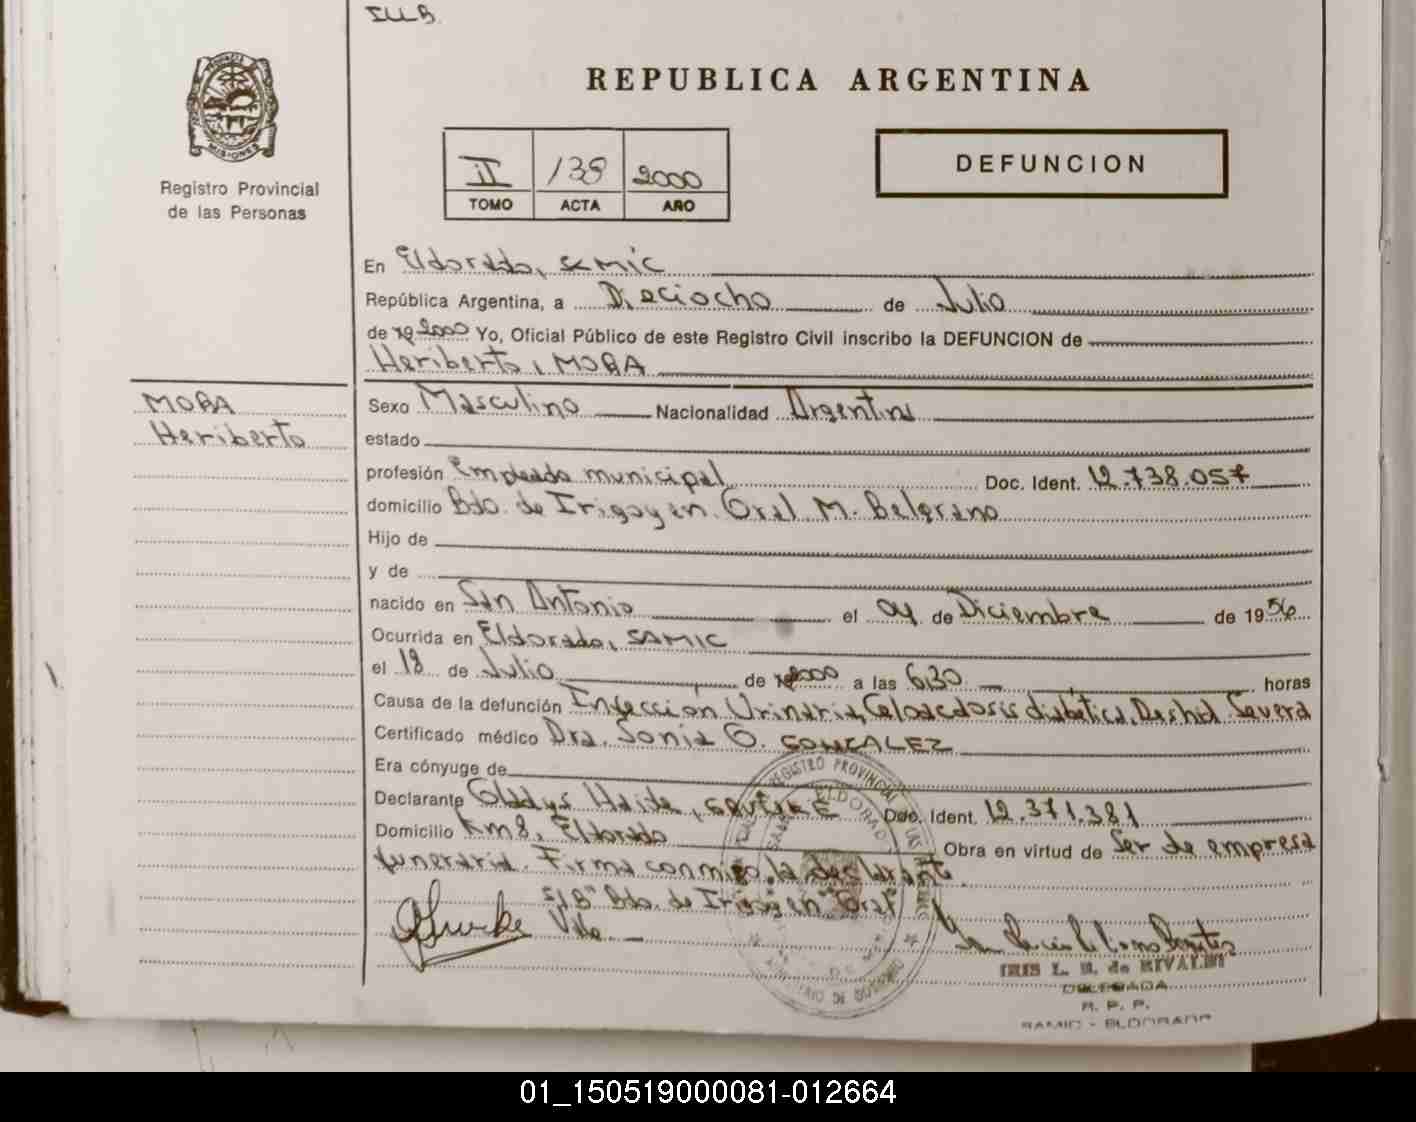 REPUBLICA ARGENTINA
PROVINCIA
MISIONES
Registro Provincial
de las Personas
II 138 2000
TOMO ACTA AÑO
DEFUNCION
En Eldorado, SAMIC
República Argentina, a Dieciocho de Julio
de 19 2000 Yo, Oficial Público de este Registro Civil inscribo la DEFUNCION de
Heriberto, MORA
MORA
Heriberto
Sexo Masculino Nacionalidad Argentina
estado
profesión Empleado municipal Doc. Ident. 12.738.057
domicilio Bdo. de Irigoyen. Gral. M. Belgrano
Hijo de
y de
nacido en San Antonio el 04 de Diciembre de 1956
Ocurrida en Eldorado, SAMIC
el 18 de Julio de 2000 a las 6,30 horas
Causa de la defunción Infección Urinaria, diabética, Deshid. Severa
Certificado médico Dra. Sonia O. GONZALEZ
Era cónyuge de
Declarante Gladys Doc. Ident. 12.371.381
Domicilio Km 8, Eldorado Obra en virtud de Ser de empresa
funeraria. Firma conmigo la declarante.
S/B "Bdo. de Irigoyen Gral"
Vale
REGISTRO PROVINCIAL DE LAS
ELDORADO
IRIS L. B. de RIVALDI
DELEGADA
R. P. P.
SAMIC - ELDORADO
01_150519000081-012664